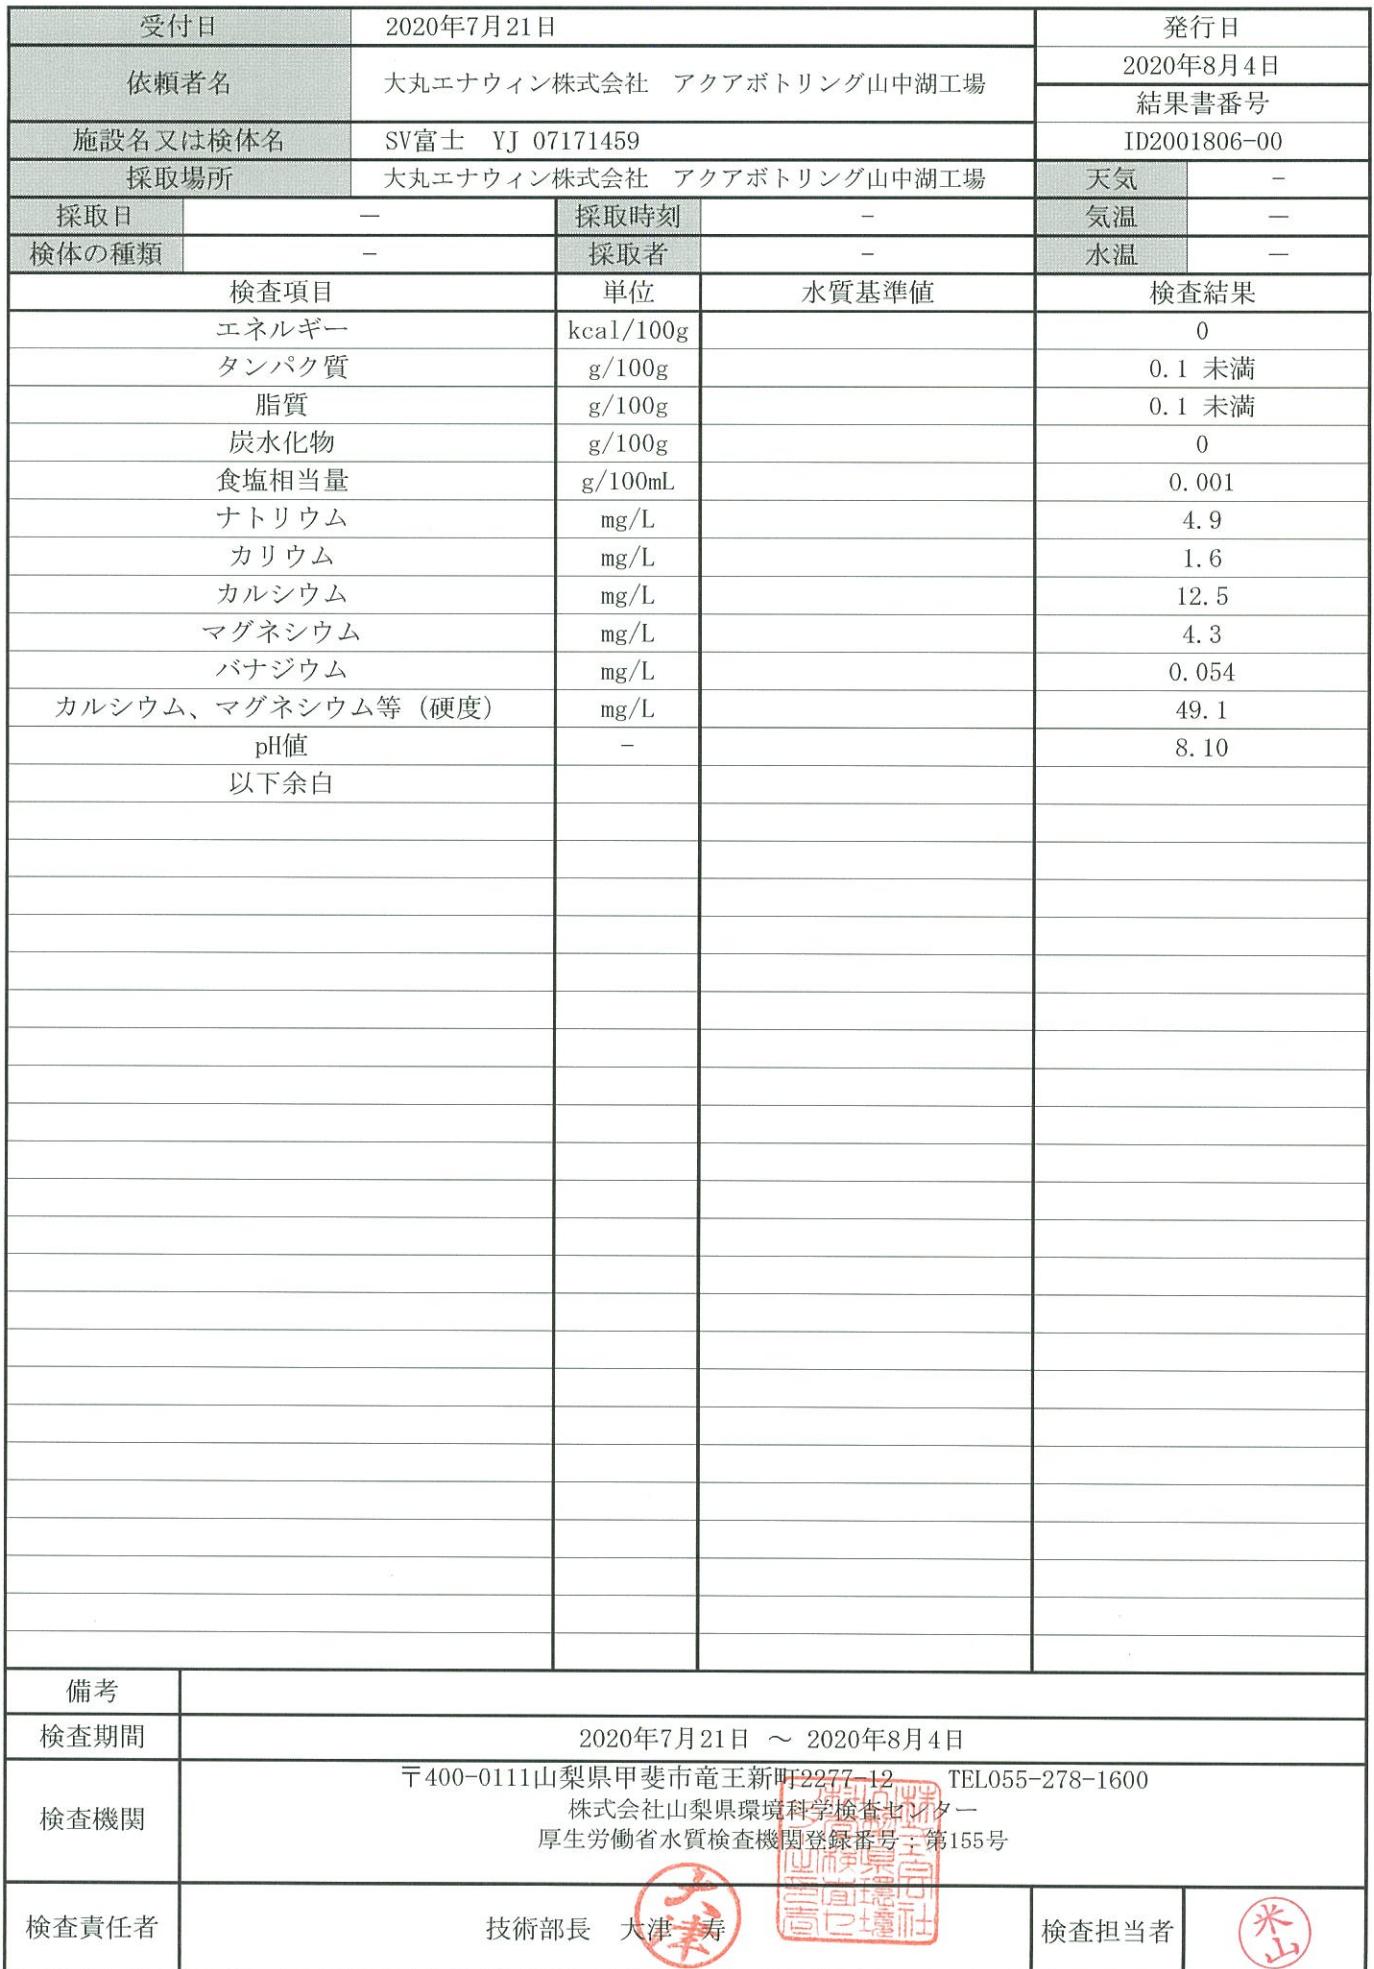 受付日 2020年7月21日 発行日
依頼者名 大丸エナウィン株式会社 アクアボトリング山中湖工場 2020年8月4日
結果書番号
施設名又は検体名 SV富士 YJ 07171459 ID2001806-00
採取場所 大丸エナウィン株式会社 アクアボトリング山中湖工場 天気 −
採取日 − 採取時刻 − 気温 −
検体の種類 − 採取者 − 水温 −
検査項目 単位 水質基準値 検査結果
エネルギー kcal/100g 0
タンパク質 g/100g 0.1 未満
脂質 g/100g 0.1 未満
炭水化物 g/100g 0
食塩相当量 g/100mL 0.001
ナトリウム mg/L 4.9
カリウム mg/L 1.6
カルシウム mg/L 12.5
マグネシウム mg/L 4.3
バナジウム mg/L 0.054
カルシウム、マグネシウム等（硬度） mg/L 49.1
pH値 − 8.10
以下余白
備考
検査期間 2020年7月21日 ～ 2020年8月4日
〒400-0111山梨県甲斐市竜王新町2277-12 TEL055-278-1600
検査機関 株式会社山梨県環境科学検査センター
厚生労働省水質検査機関登録番号：第155号
検査責任者 技術部長 大津 寿 大津 検査担当者 米山